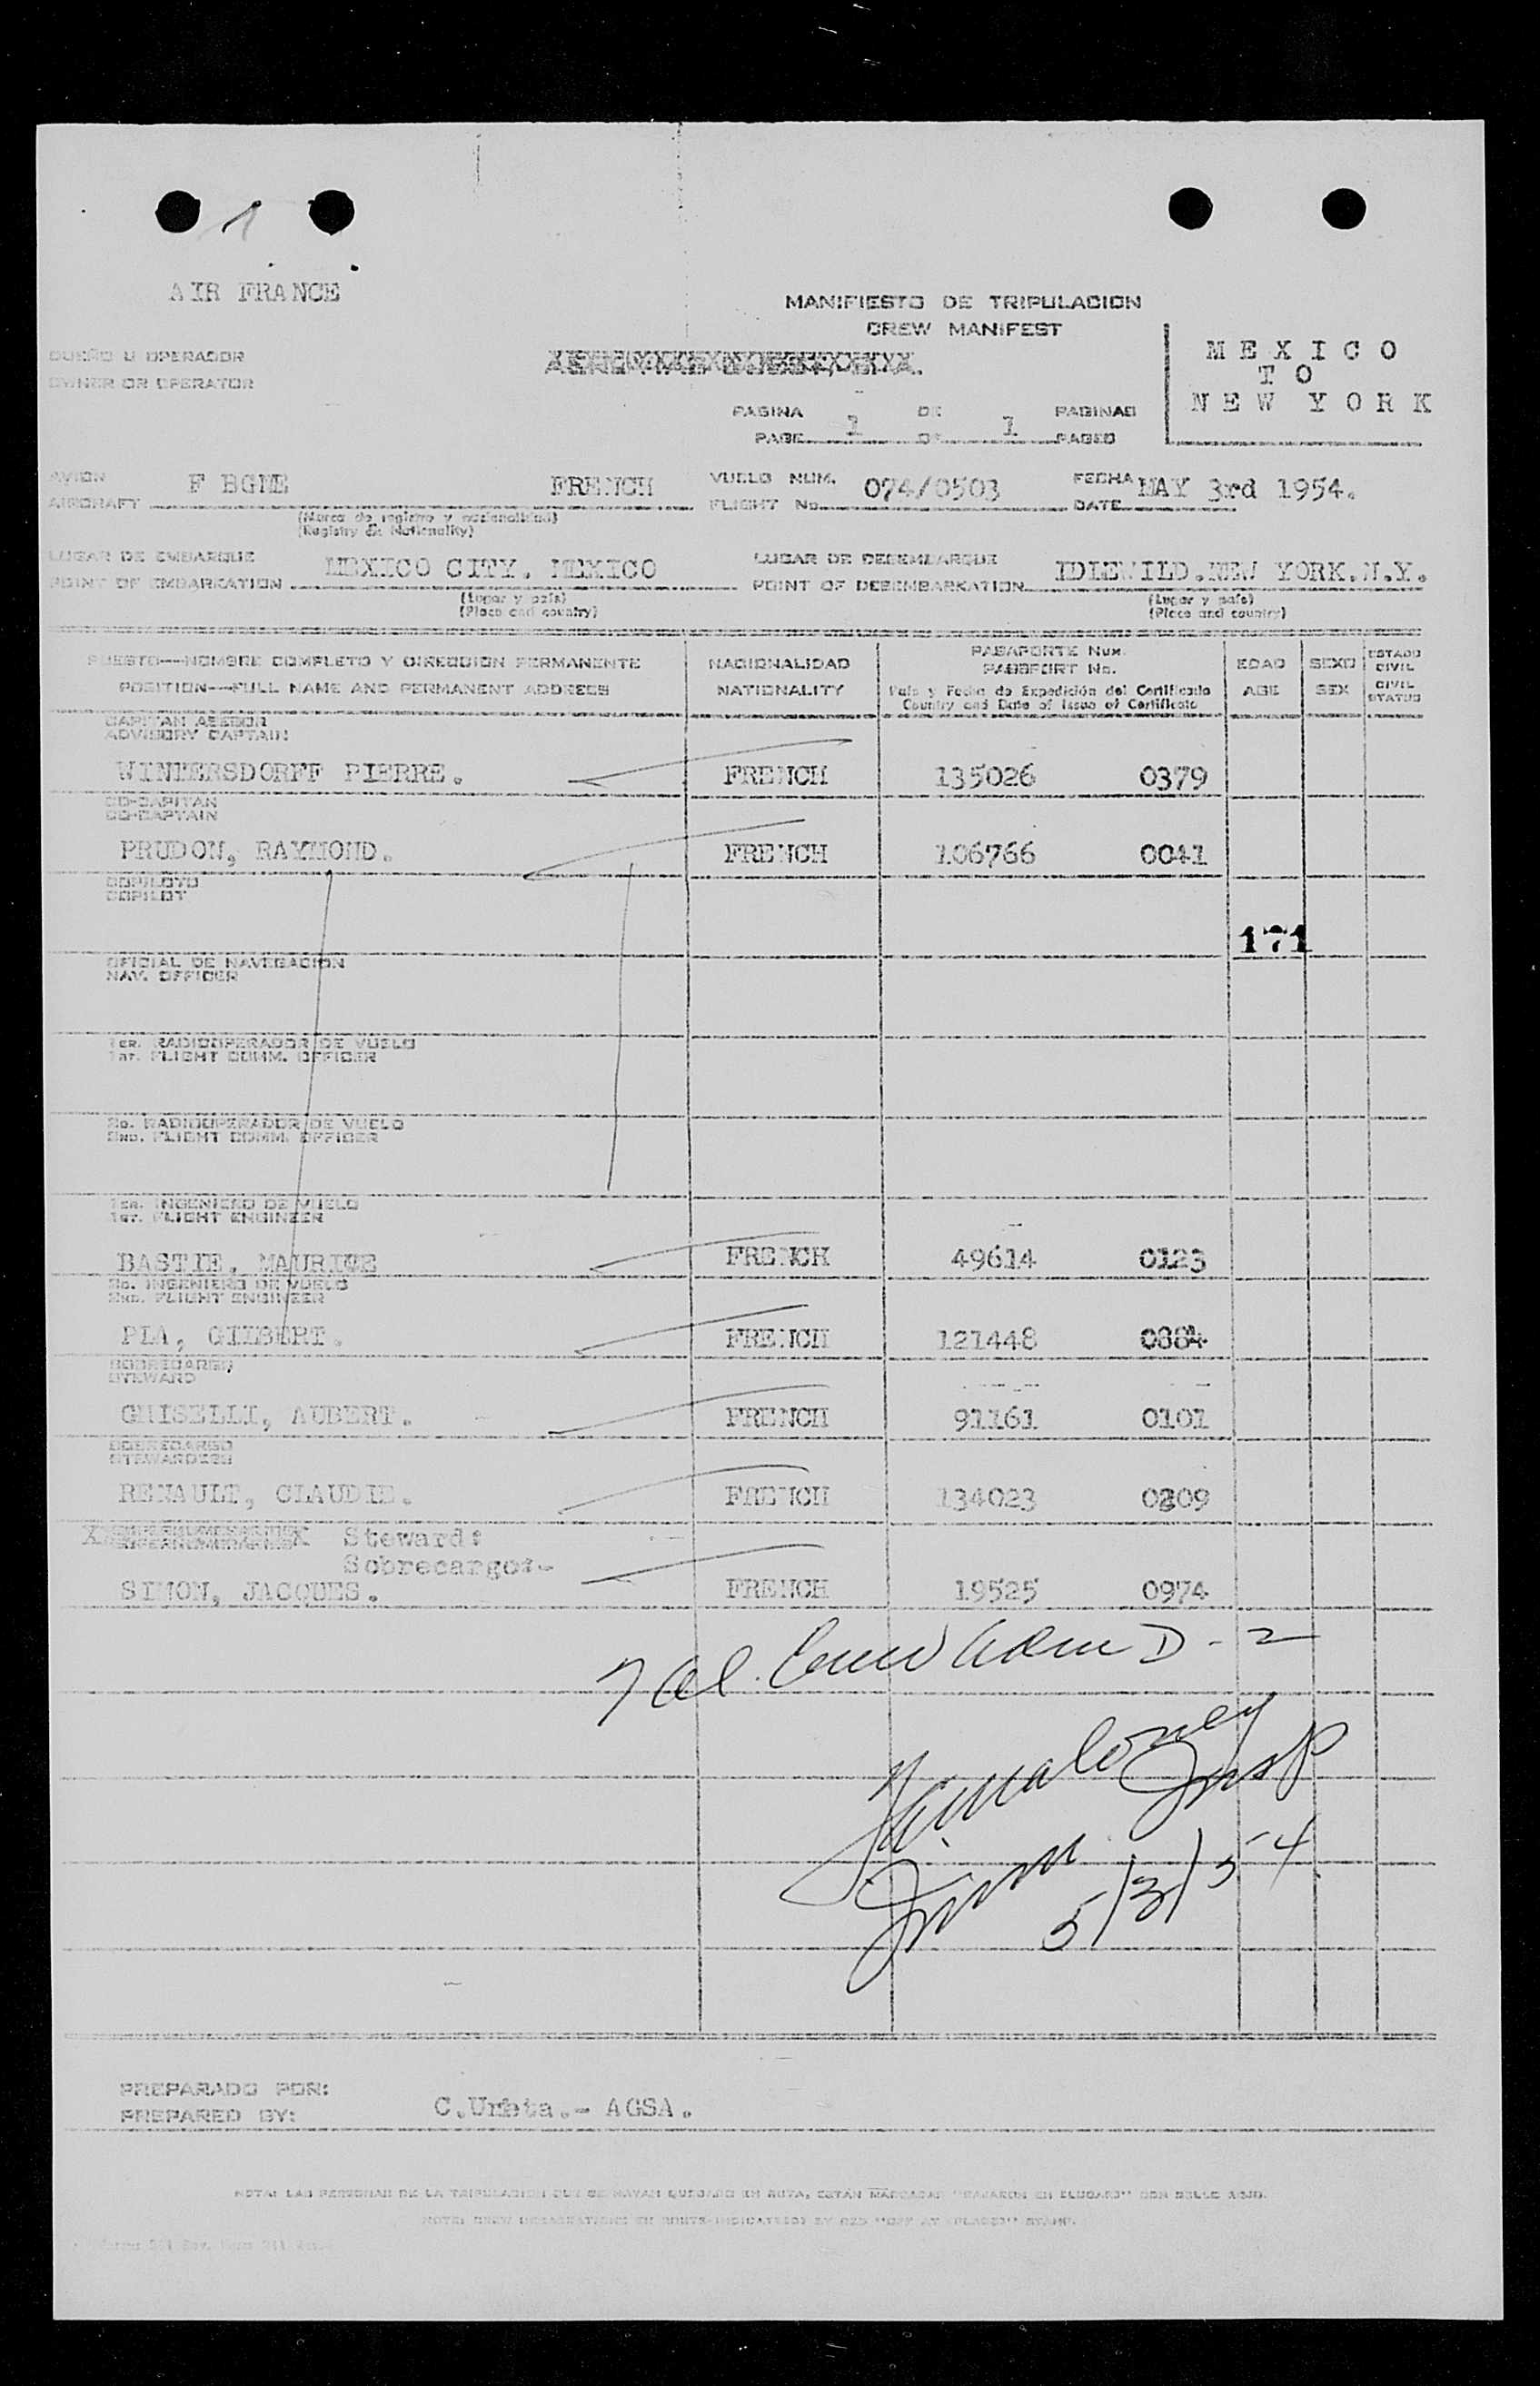 1
AIR FRANCE
MANIFIESTO DE TRIPULACION
CREW MANIFEST
DUEÑO U OPERADOR
OWNER OR OPERATOR
MEXICO
TO
NEW YORK
PAGINA DE PAGINAS
PAGE 1 OF 1 PAGES
AVION
AIRCRAFT F BGNE FRENCH
VUELO NUM.
FLIGHT No. 074/0503
FECHA
DATE MAY 3rd 1954.
(Marca de registro y nacionalidad)
(Registry & Nationality)
LUGAR DE EMBARQUE
POINT OF EMBARCATION MEXICO CITY. MEXICO
LUGAR DE DESEMBARQUE
POINT OF DESEMBARKATION IDLEWILD.NEW YORK.N.Y.
(Lugar y país)
(Place and country)
(Lugar y país)
(Place and country)
PUESTO—NOMBRE COMPLETO Y DIRECCION PERMANENTE
POSITION—FULL NAME AND PERMANENT ADDRESS
NACIONALIDAD
NATIONALITY
PASAPORTE Num.
PASSPORT No.
País y Fecha de Expedición del Certificado
Country and Date of Issue of Certificate
EDAD
AGE
SEXO
SEX
ESTADO
CIVIL
CIVIL
STATUS
CAPITAN ASESOR
ADVISORY CAPTAIN
WINTERSDORFF PIERRE. FRENCH 135026 0379
CO-CAPITAN
CO-CAPTAIN
PRUDON, RAYMOND. FRENCH 106766 0041
COPILOTO
COPILOT
171
OFICIAL DE NAVEGACION
NAV. OFFICER
1ER. RADIOOPERADOR DE VUELO
1ST. FLIGHT COMM. OFFICER
2o. RADIOOPERADOR DE VUELO
2ND. FLIGHT COMM. OFFICER
1ER. INGENIERO DE VUELO
1ST. FLIGHT ENGINEER
BASTIE, MAURICE FRENCH 49614 0123
2o. INGENIERO DE VUELO
2ND. FLIGHT ENGINEER
PLA, GILBERT. FRENCH 121448 0884
SOBRECARGO
STEWARD
GHISELLI, AUBERT. FRENCH 91161 0101
SOBRECARGO
STEWARDESS
RENAULT, CLAUDIE. FRENCH 134023 0809
Steward:
Sobrecargo:-
SIMON, JACQUES. FRENCH 19525 0974
7 al. Crew Adm D-2
Insp
5/3/54
PREPARADO POR:
PREPARED BY: C.Urbta.- AGSA.